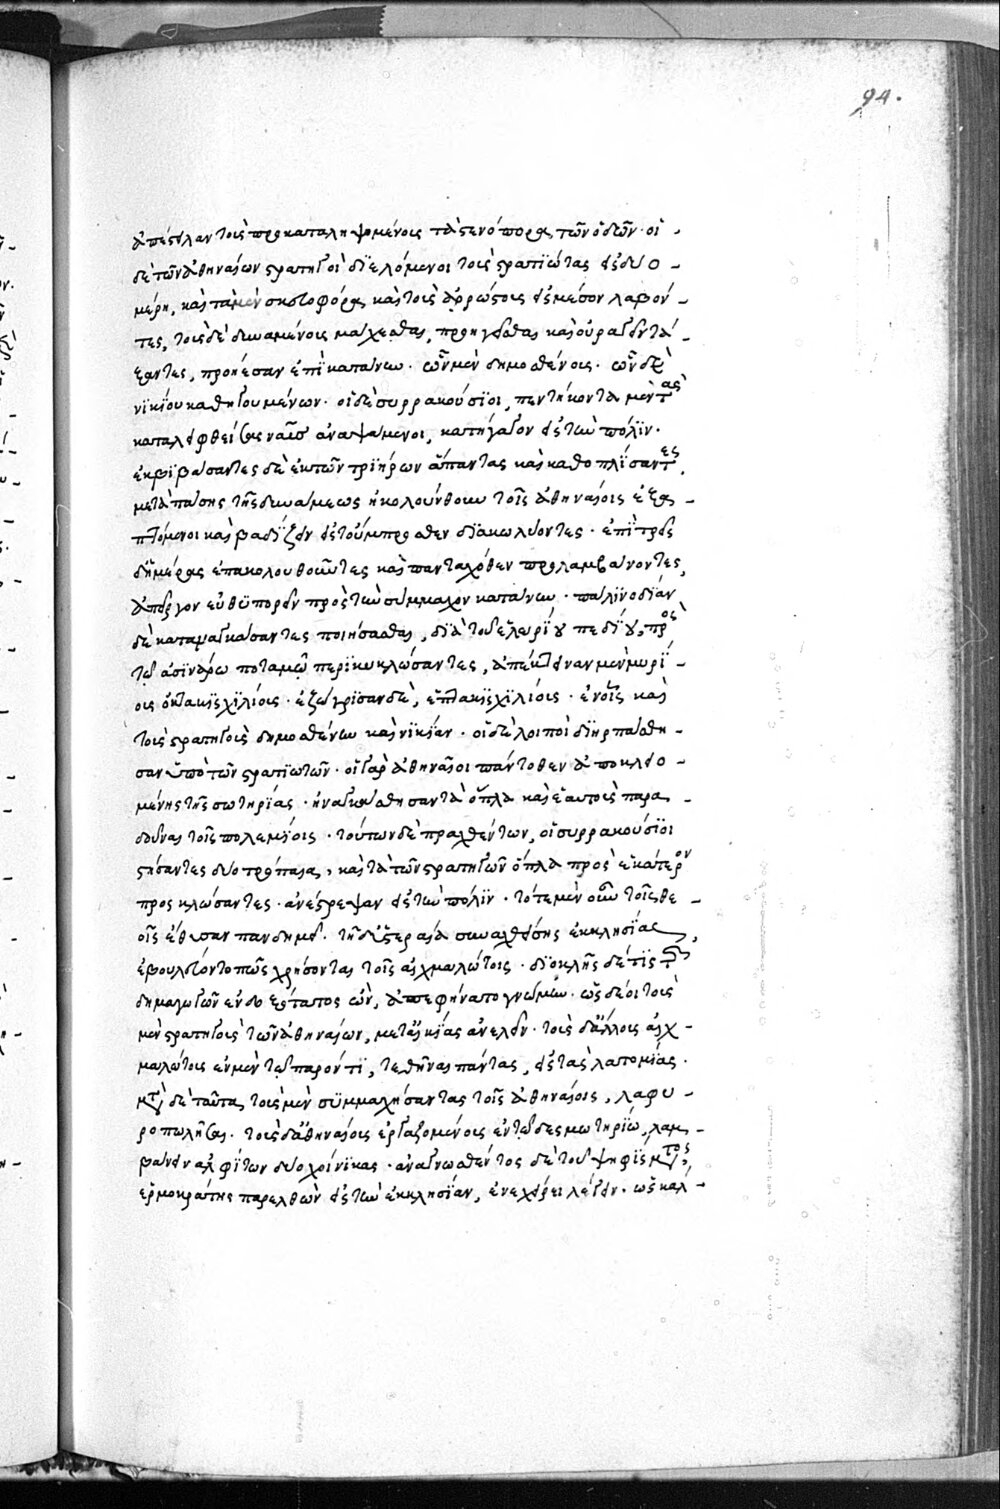 94.
ἀπέστειλαν τοὺς προκαταληψομένους τὰ στενόπορα τῶν ὁδῶν· οἱ
δὲ τῶν ἀθηναίων στρατηγοὶ διελόμενοι τοὺς στρατιώτας εἰς δύο
μέρη, καὶ τὰ μὲν σκευοφόρα καὶ τοὺς ἀρρώστους εἰς μέσον λαβόν-
τες, τοὺς δὲ δυναμένους μάχεσθαι, προηγεῖσθαι καὶ οὐραγεῖν τά-
ξαντες, προήεσαν ἐπὶ κατάνην· ὧν μὲν δημοσθένους· ὧν δὲ
νικίου καθηγουμένων· οἱ δὲ συρρακούσιοι, πεντήκοντα μὲν τὰς
καταλειφθείσας ναῦς ἀναψάμενοι, κατήγαγον εἰς τὴν πόλιν·
ἐκβιβάσαντες δὲ ἐκ τῶν τριήρων ἅπαντας καὶ καθοπλίσαντες
μετὰ πάσης τῆς δυνάμεως ἠκολούθουν τοῖς ἀθηναίοις ἐξα-
πτόμενοι καὶ βαδίζειν εἰς τοὔμπροσθεν διακωλύοντες· ἐπὶ τρεῖς
δ' ἡμέρας ἐπακολουθοῦντες καὶ πανταχόθεν προλαμβάνοντες,
ἀπεῖργον εὐθυπορεῖν πρὸς τὴν σύμμαχον κατάνην· παλινοδίαν
δὲ καταναγκάσαντες ποιήσασθαι, διὰ τοῦ ἐλωρίου πεδίου, πρὸς
τῷ ἀσινάρῳ ποταμῷ περικυκλώσαντες, ἀπέκτειναν μὲν μυρί-
ους ὀκτακισχιλίους· ἐζώγρισαν δὲ, ἑπτακισχιλίους· ἐν οἷς καὶ
τοὺς στρατηγοὺς δημοσθένην καὶ νικίαν· οἱ δὲ λοιποὶ διηρπάσθη-
σαν ὑπὸ τῶν στρατιωτῶν· οἱ γὰρ ἀθηναῖοι πάντοθεν ἀποκλειο-
μένης τῆς σωτηρίας· ἠναγκάσθησαν τὰ ὅπλα καὶ ἑαυτοὺς παρα-
δοῦναι τοῖς πολεμίοις· τούτων δὲ πραχθέντων, οἱ συρρακούσιοι
στήσαντες δύο τρόπαια, καὶ τὰ τῶν στρατηγῶν ὅπλα πρὸς ἑκάτερον
προσηλώσαντες· ἀνέστρεψαν εἰς τὴν πόλιν· τότε μὲν οὖν τοῖς θε-
οῖς ἔθυσαν πανδημεί· τῇ δ' ὑστεραίᾳ συναχθείσης ἐκκλησίας,
ἐβουλεύοντο πῶς χρήσονται τοῖς αἰχμαλώτοις· διοκλῆς δέ τις τῶν
δημαγωγῶν ἐνδοξότατος ὢν, ἀπεφήνατο γνώμην· ὡς δέοι τοὺς
μὲν στρατηγοὺς τῶν ἀθηναίων, μετ' αἰκίας ἀνελεῖν· τοὺς δ' ἄλλους αἰχ-
μαλώτους ἐν μὲν τῷ παρόντι, τεθῆναι πάντας, εἰς τὰς λατομίας·
μετὰ δὲ ταῦτα, τοὺς μὲν συμμαχήσαντας τοῖς ἀθηναίοις, λαφυ-
ροπωλῆσαι· τοὺς δ' ἀθηναίους ἐργαζομένους ἐν τῷ δεσμωτηρίῳ, λαμ-
βάνειν ἀλφίτων δύο χοίνικας· ἀναγνωσθέντος δὲ τοῦ ψηφίσματος,
ἑρμοκράτης παρελθὼν εἰς τὴν ἐκκλησίαν, ἐνεχείρει λέγειν· ὡς καλ-